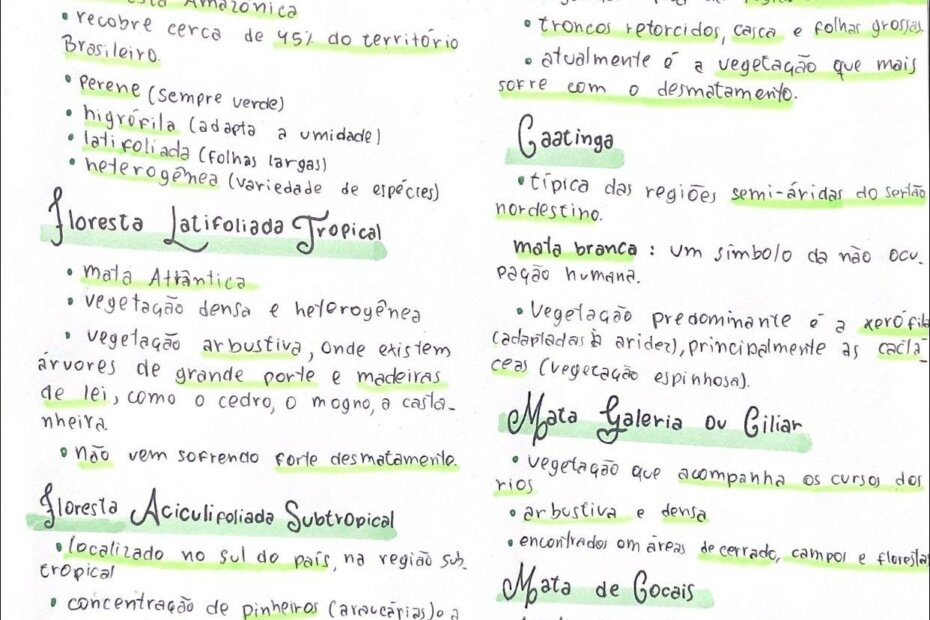 Amazônica
• recobre cerca de 45% do território
Brasileiro.
• perene (sempre verde)
• higrófila (adapta a umidade)
• latifoliada (folhas largas)
• heterogênea (variedade de espécies)
Floresta Latifoliada Tropical
• mata Atlântica
• vegetação densa e heterogênea
• vegetação arbustiva, onde existem
árvores de grande porte e madeiras
de lei, como o cedro, o mogno, a casta-
nheira.
• não vem sofrendo forte desmatamento.
Floresta Aciculifoliada Subtropical
• localizado no sul do país, na região sub-
tropical
• concentração de pinheiros (araucárias) e a
• troncos retorcidos, casca e folhas grossas
• atualmente é a vegetação que mais
sofre com o desmatamento.
Caatinga
• típica das regiões semi-áridas do sertão
nordestino.
mata branca : um símbolo da não ocu-
pação humana.
• vegetação predominante é a xerófila
(adaptadas à aridez), principalmente as cactá-
ceas (vegetação espinhosa).
Mata Galeria ou Ciliar
• vegetação que acompanha os cursos dos
rios
• arbustiva e densa
• encontrados om áreas de cerrado, campos e florestas
Mata de Cocais